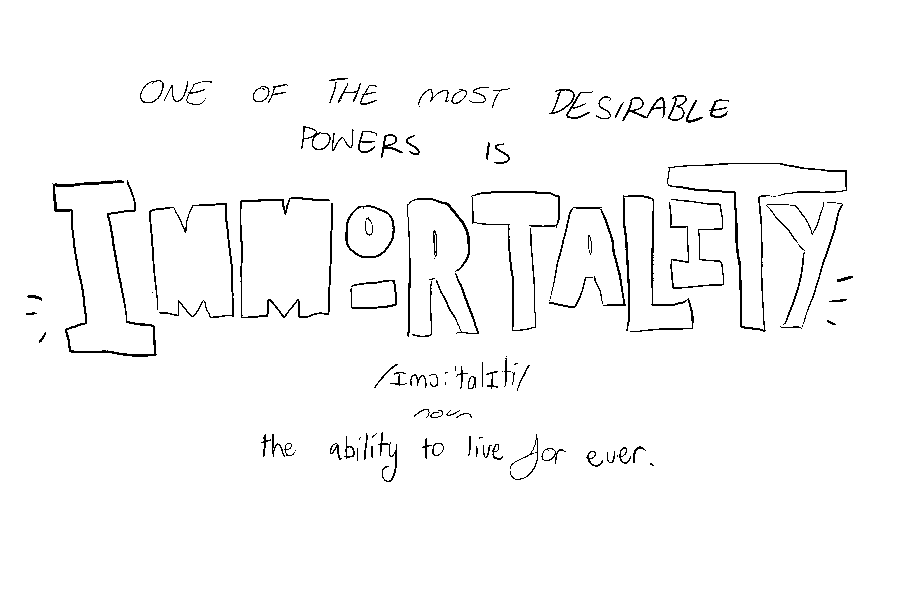 ONE OF THE MOST DESIRABLE
POWERS IS
IMMORTALITY
/ɪmɔːˈtalɪti/
noun
the ability to live for ever.